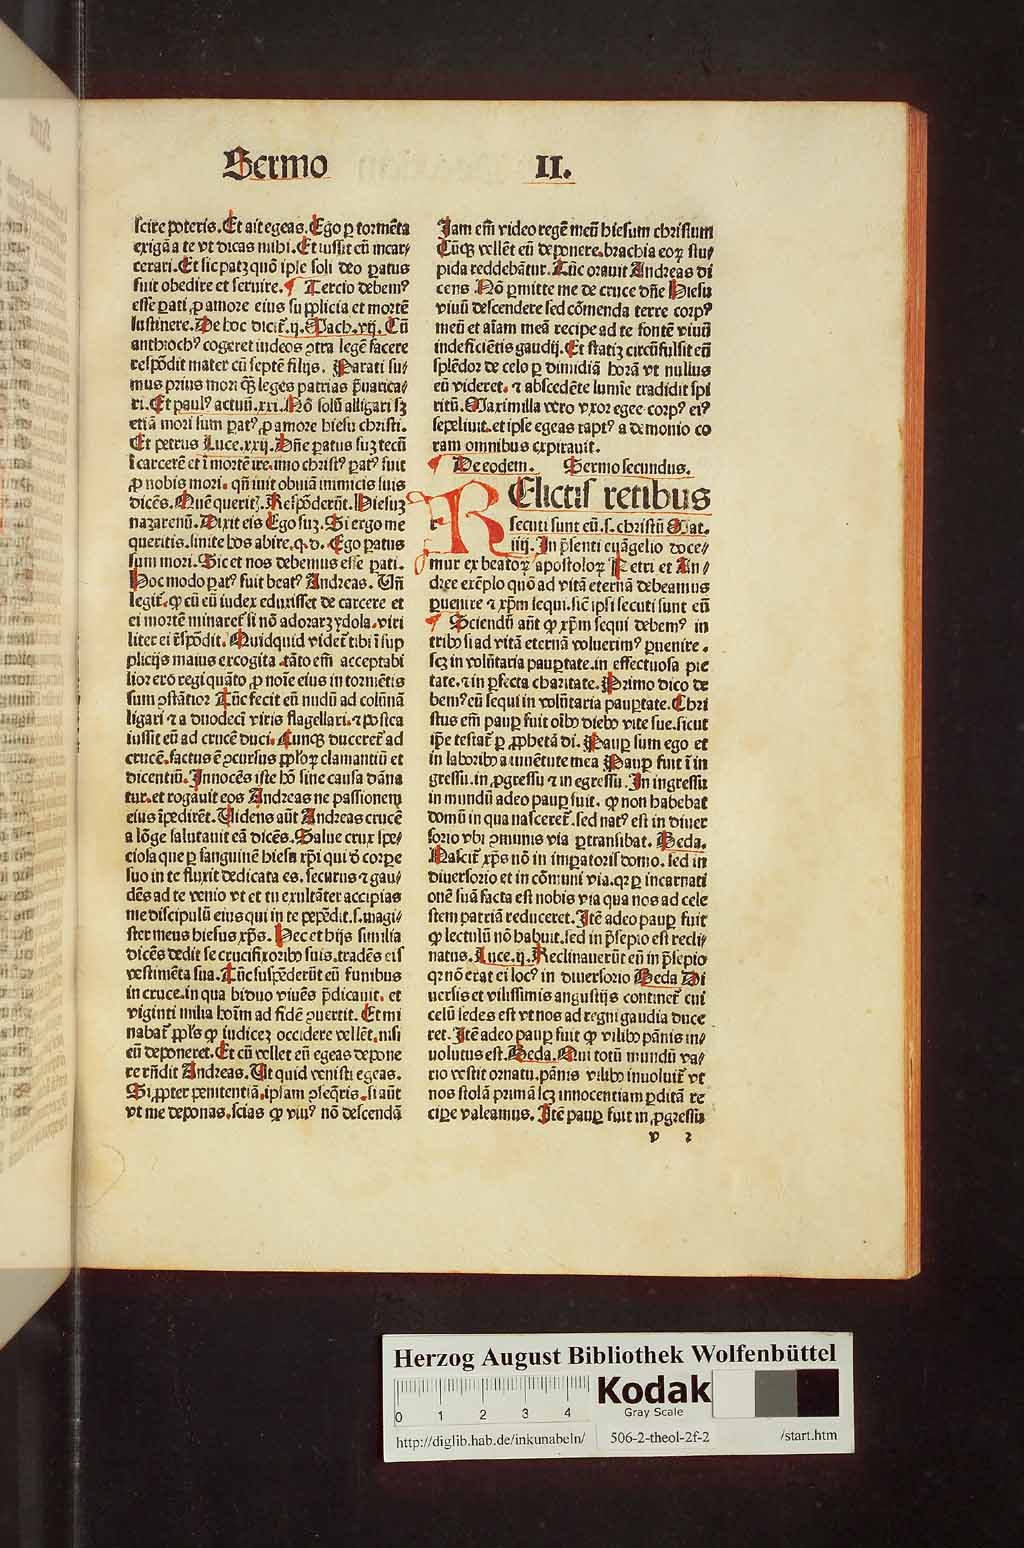 Sermo II.
scire poteris. Et ait egeas. Ego ꝑ tormēta
exigā a te vt dicas mihi. Et iussit eū incar⸗
cerari. Et sic patꝫ quō ipse soli deo paratus
fuit obedire et seruire. ¶ Tercio debemꝰ
esse pati ꝓ amore eius supplicia et mortē
sustinere. De hoc dicit᷑ .ij. Mach. vij. Cū
anthiochꝰ cogeret iudeos ꝯtra legē facere
respōdit mater cū septē filijs. Parati su⸗
mus prius mori qͣꝫ leges patrias p̄uarica⸗
ri. Et paulꝰ actuū .xxi. Nō solū alligari sꝫ
etiā mori sum patꝰ ꝓ amore hiesu christi.
Et petrus Luce .xxij. Dn̄e paratus suꝫ tecū
ī carcerē et ī mortē ire. imo christꝰ patꝰ fuit
ꝓ nobis mori. qn̄ iuit obuiā inimicis suis
dicēs. Quē queritꝭ. Respōderūt. Hiesuꝫ
nazarenū. Dixit eis Ego suꝫ. Si ergo me
queritis. sinite hos abire. q. d. Ego paratus
sum mori. Sic et nos debemus esse pati.
Hoc modo patꝰ fuit beatꝰ Andreas. Vn̄
legit᷑. ꝙ cū eū iudex eduxisset de carcere et
ei mortē minaret᷑ si nō adoraꝝ ydola. viri
liter ei r̄spōdit. Quidquid videt᷑ tibi ī sup
plicijs maius excogita. tāto em̄ acceptabi
lior erō regi quāto ꝓ noīe eius in tormētis
sum ꝯstātior Tūc fecit eū nudū ad colūnā
ligari ⁊ a duodecī viris flagellari. ⁊ postea
iussit eū ad crucē duci. Cunqꝫ duceret᷑ ad
crucē. factus ē ꝯcursus ppl̄oꝝ clamantiū et
dicentiū. Innocēs iste hō sine causa dāna
tur. et rogauit eos Andreas ne passionem
eius īpedirēt. Videns aūt Andreas crucē
a lōge salutauit eā dicēs. Salue crux spe⸗
ciosa que ꝑ sanguinē hiesu xp̄i qui ō corpe
suo in te fluxit dedicata es. securus ⁊ gau⸗
dēs ad te venio vt et tu exultāter accipias
me discipulū eius qui in te pepēdit. s. magi⸗
ster meus hiesus xp̄s. Hec et hijs similia
dicēs dedit se crucifixoribꝫ suis. tradēs eis
vestimēta sua. Tūc suspēderūt eū funibus
in cruce. in qua biduo viuēs p̄dicauit. et
viginti milia hoīm ad fidē ꝯuertit. Et mi
nabat᷑ ppl̄s ꝙ iudiceꝫ occidere vellēt. nisi
eū deponeret. Et cū vellet eū egeas depone
re rn̄dit Andreas. Vt quid venisti egeas.
Si ꝓpter penitentiā. ipsam ꝯseq̄ris. si aūt
vt me deponas. scias ꝙ viuꝰ nō descendā
Jam em̄ video regē meū hiesum christum
Cūqꝫ vellēt eū deponere. brachia eoꝝ stu⸗
pida reddebātur. Tūc orauit Andreas di
cens. Nō ꝑmitte me de cruce dn̄e Hiesu
viuū descendere sed cōmenda terre corpꝰ
meū et aīam meā recipe ad te fontē viuū
indeficiētis gaudij. Et statiꝫ circūfulsit eū
splēdor de celo ꝑ dimidiā horā vt nullus
eū videret. ⁊ abscedēte lumīe tradidit spi
ritū. Maximilla vero vxor egee corpꝰ eiꝰ
sepeliuit. et ipse egeas raptꝰ a demonio co
ram omnibus expirauit.
¶ De eodem. Sermo secundus.
RElictis retibus
secuti sunt eū. s. christū Mat.
iiij. In p̄senti euāgelio doce⸗
mur ex beatoꝝ apostoloꝝ Petri et An⸗
dree exēplo quō ad vitā eternā debeamus
ꝑuenire ⁊ xp̄m sequi. sic̄ ipsi secuti sunt eū
¶ Sciendū aūt ꝙ xp̄m sequi debemꝰ in
tribꝫ si ad vitā eternā voluerimꝰ ꝑuenire.
scꝫ in volūtaria pauꝑtate. in effectuosa pie
tate. ⁊ in ꝑfecta charitate. Primo dico de
bemꝰ eū sequi in volūtaria pauꝑtate. Chri
stus em̄ pauꝑ fuit oībꝫ diebꝫ vite sue. sicut
ip̄e testat᷑ ꝑ ꝓphetā di. Pauꝑ sum ego et
in laboribꝫ a iuuētute mea Pauꝑ fuit ī in
gressu. in ꝓgressu ⁊ in egressu. In ingressu
in mundū adeo pauꝑ fuit. ꝙ non habebat
domū in qua nasceret᷑. sed natꝰ est in diuer
sorio vbi ꝯmunis via ꝑtransibat. Beda.
Nascit᷑ xp̄s nō in imꝑatoris domo. sed in
diuersorio et in cōmuni via. qꝛ ꝑ incarnati
onē suā facta est nobis via qua nos ad cele
stem patriā reduceret. Itē adeo pauꝑ fuit
ꝙ lectulū nō habuit. sed in p̄sepio est recli⸗
natus. Luce. ij. Reclinauerūt eū in p̄sepio
qꝛ nō erat ei locꝰ in diuersorio Beda Di
uersis et vilissimis angustijs continet᷑ cui
celū sedes est vt nos ad regni gaudia duce
ret. Itē adeo pauꝑ fuit ꝙ vilibꝫ pānis in⸗
uolutus est. Beda. Qui totū mundū va⸗
rio vestit ornatu. pānis vilibꝫ inuoluit᷑ vt
nos stolā primā scꝫ innocentiam ꝑditā re
cipe valeamus. Itē pauꝑ fuit in ꝓgressu
v 2
Herzog August Bibliothek Wolfenbüttel
0 1 2 3 4
Kodak
Gray Scale
http://diglib.hab.de/inkunabeln/ 506-2-theol-2f-2 /start.htm